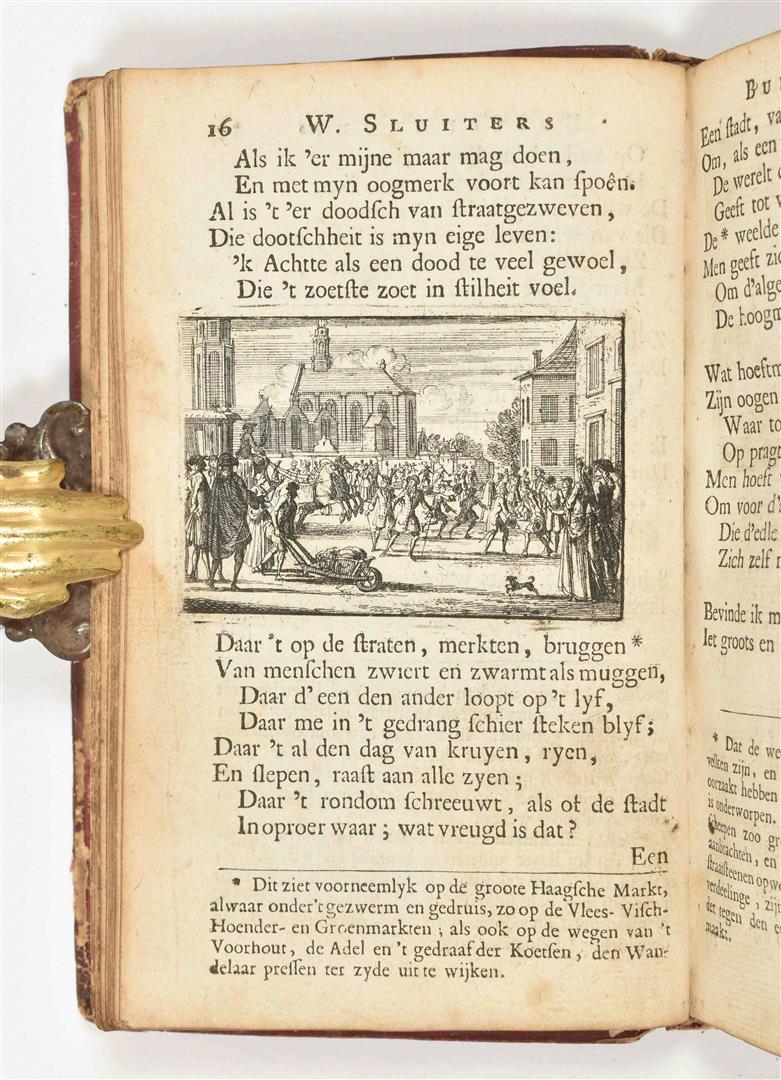 16 W. SLUITERS
Als ik 'er mijne maar mag doen,
En met myn oogmerk voort kan ſpoên.
Al is 't 'er doodſch van ſtraatgezweven,
Die dootſchheit is myn eige leven:
'k Achtte als een dood te veel gewoel,
Die 't zoetſte zoet in ſtilheit voel.
Daar 't op de ſtraten, merkten, bruggen *
Van menſchen zwiert en zwarmt als muggen,
Daar d'een den ander loopt op 't lyf,
Daar me in 't gedrang ſchier ſteken blyf;
Daar 't al den dag van kruyen, ryen,
En ſlepen, raaſt aan alle zyen;
Daar 't rondom ſchreeuwt, als of de ſtadt
In oproer waar; wat vreugd is dat?
Een
* Dit ziet voorneemlyk op de groote Haagſche Markt,
alwaar onder 't gezwerm en gedruis, zo op de Vlees- Viſch-
Hoender- en Groenmarkten; als ook op de wegen van 't
Voorhout, de Adel en 't gedraaf der Koetſen, den Wan-
delaar preſſen ter zyde uit te wijken.
BU
Een ſtadt, va
Om, als een
De werelt
Geeft tot
De * weelde
Men geeft zic
Om d'alge
De hoogm
Wat hoeftm
Zijn oogen
Waar to
Op pragt
Men hoeft
Om voor d'
Die d'edle
Zich zelf
Bevinde ik m
Iet groots en
* Dat de we
volken zijn, en
oorzaakt hebben
is onderworpen.
ſcheepen zoo gr
aanbrachten, en
ſtraatſteenen opwe
verdeelinge, zijt
der tegen den
maakt.